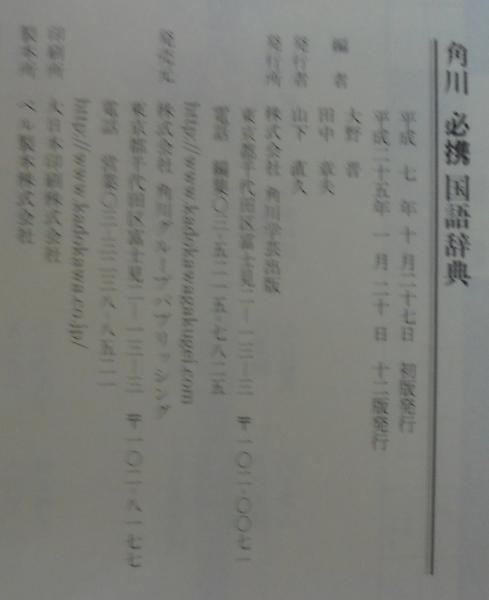 角川 必携 国語辞典
平成 七 年 十 月二十七日 初版発行
平成二十五年 一 月二十 日 十二版発行
編 者 大野 晋
田中 章夫
発行者 山下 直久
発行所 株式会社 角川学芸出版
東京都千代田区富士見二―一三―三 〒一〇二-〇〇七一
電話 編集〇三-五二一五-七八二五
http://www.kadokawagakugei.com
発売元 株式会社 角川グループパブリッシング
東京都千代田区富士見二―一三―三 〒一〇二-八一七七
電話 営業〇三-三二三八-八五二一
http://www.kadokawa.co.jp/
印刷所 大日本印刷株式会社
製本所 ベル製本株式会社